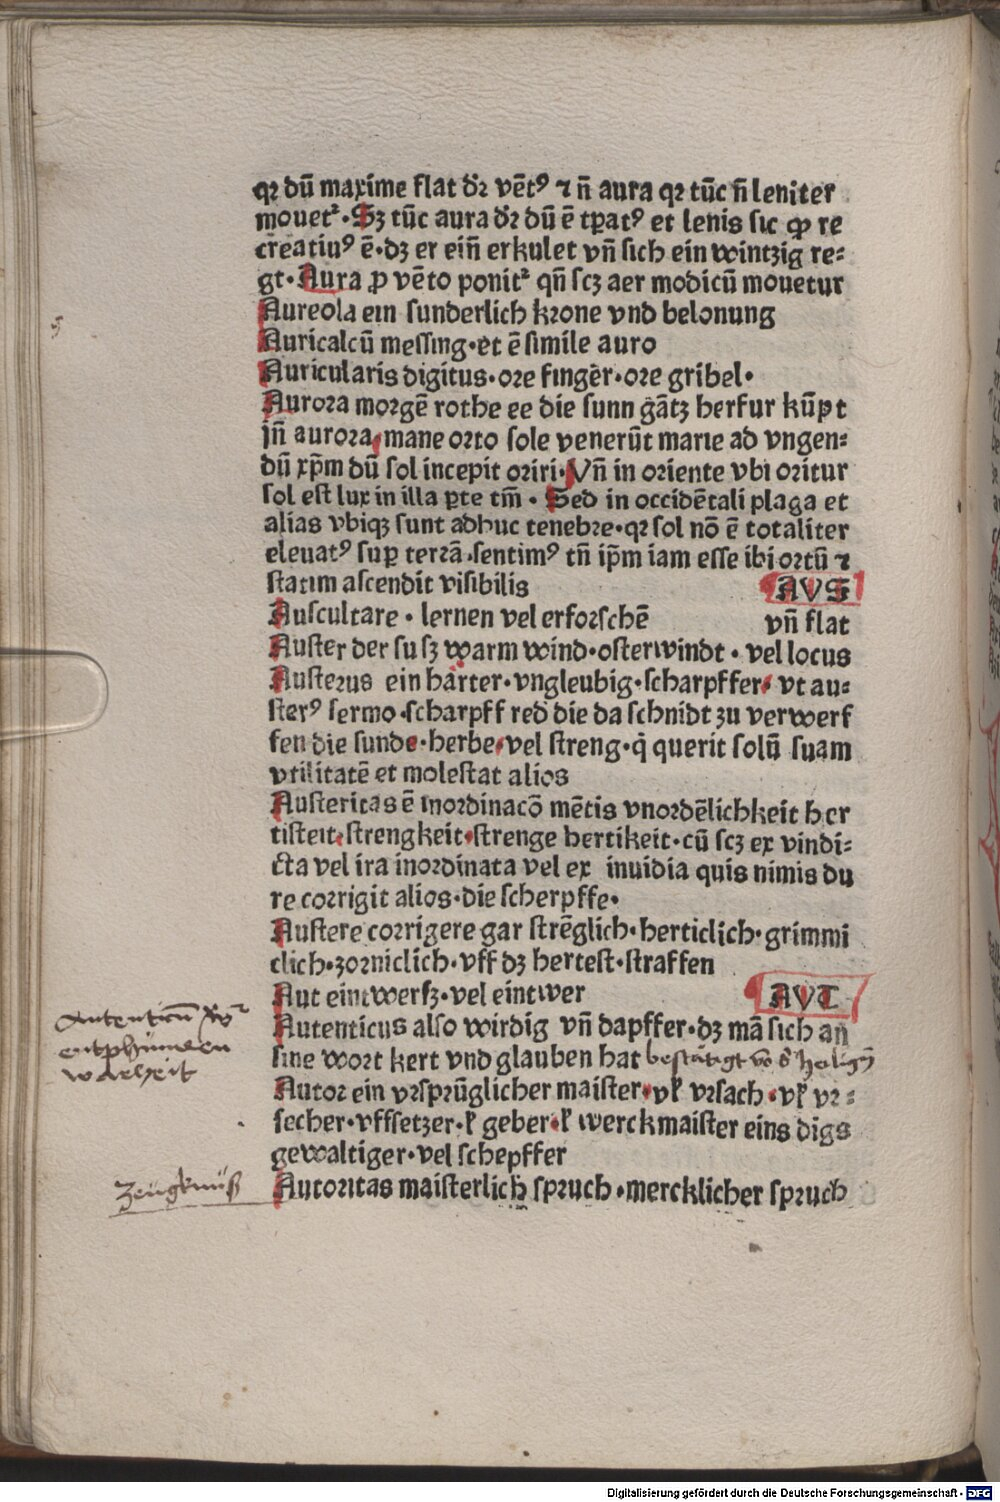 qꝛ dū maxime flat dꝛ̄ vēt⁹ ⁊ n̄ aura qꝛ tūc n̄ leniter
mouetᷣ·Sꝫ tūc aura dꝛ̄ dū ē tꝑat⁹ et lenis sic ꝙ re
creatiu⁹ ē·dꝫ er ein̄ erkulet vn̄ sich ein wintzig re⸗
gt·Aura ꝓ vēto ponitᷣ qn̄ scꝫ aer modicū mouetur
Aureola ein sunderlich kꝛone vnd belonung
Auricalcū messing·et ē simile auro
Auricularis digitus·oꝛe finger·oꝛe gribel·
Auroꝛa moꝛgē rothe ee die sunn gātz herfur kūpt
jn̄ auroꝛa·mane oꝛto sole venerūt marie ad vngen⸗
dū xp̄m dū sol incepit oriri·Vn̄ in oriente vbi oritur
sol est lux in illa ꝑte tm̄·Sed in occidētali plaga et
alias vbiqꝫ sunt adhuc tenebꝛe·qꝛ sol nō ē totaliter
eleuat⁹ suꝑ terrā·sentim⁹ tn̄ ip̄m iam esse ibi oꝛtū ⁊
statim ascendit visibilis
AVS
Auscultare·lernen vel erfoꝛschē
vn̄ flat
Auster der susz warm wind·osterwindt·vel locus
Austerus ein harter·vngleubig·scharpffer·vt au⸗
ster⁹ sermo·scharpff red die da schnidt zu verwerf
fen die sunde·herbe·vel streng·q̇ querit solū suam
vtilitatē et molestat alios
Austeritas ē inoꝛdinacō mētis vnoꝛdēlichkeit her
tisteit·strengkeit·strenge hertikeit·cū scꝫ ex vindi⸗
cta vel ira inoꝛdinata vel ex inuidia quis nimis du
re coꝛrigit alios·die scherpffe·
Austere coꝛrigere gar strēglich·herticlich·grimmi
clich·zoꝛniclich·vff dꝫ hertest·straffen
Aut eintwersz·vel eintwer
AVT
Autenticus also wirdig vn̄ dapffer·dꝫ mā sich an
sine woꝛt kert vnd glauben hat bestātigt
Autoꝛ ein vꝛspꝛūglicher maister·vꝉ vꝛsach·vꝉ vꝛ⸗
secher·vffsetzer·ꝉ geber·ꝉ werckmaister eins digs
gewaltiger·vel schepffer
zeügknüß
Autoꝛitas maisterlich spꝛuch·mercklicher spꝛuch
Digitalisierung gefördert durch die Deutsche Forschungsgemeinschaft - DFG